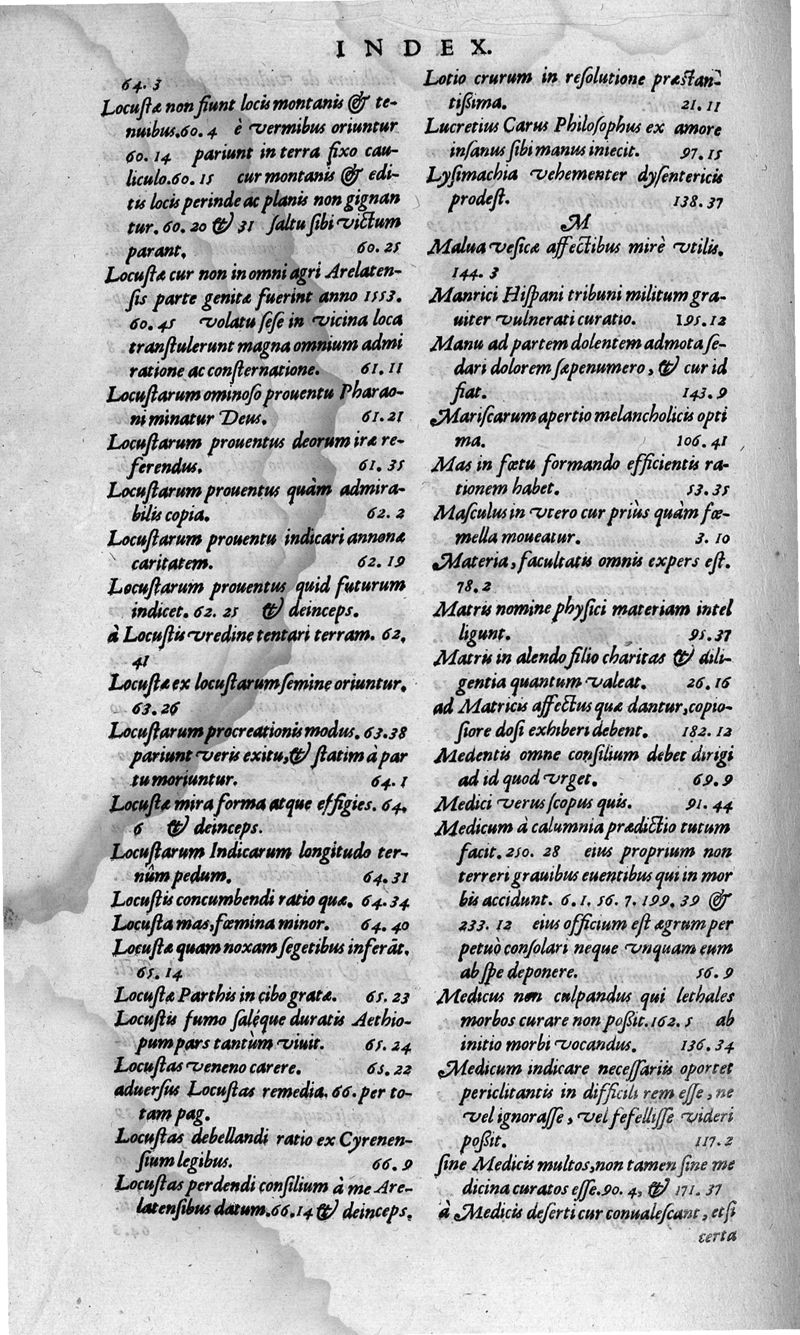 INDEX.
64. 3
Locustæ non fiunt locis montanis & te-
nuibus.60. 4 è vermibus oriuntur
60. 14 pariunt in terra fixo cau-
liculo.60. 15 cur montanis & edi-
tis locis perinde ac planis non gignan
tur. 60. 20 & 31 saltu sibi victum
parant. 60. 25
Locustæ cur non in omni agri Arelaten-
sis parte genitæ fuerint anno 1553.
60. 45 volatu sese in vicina loca
transtulerunt magna omnium admi
ratione ac consternatione. 61. 11
Locustarum ominoso prouentu Pharao-
ni minatur Deus. 61. 21
Locustarum prouentus deorum iræ re-
ferendus. 61. 35
Locustarum prouentus quàm admira-
bilis copia. 62. 2
Locustarum prouentu indicari annonæ
caritatem. 62. 19
Locustarum prouentus quid futurum
indicet. 62. 25 & deinceps.
à Locustis vredine tentari terram. 62.
41
Locustæ ex locustarum semine oriuntur.
63. 26
Locustarum procreationis modus. 63.38
pariunt veris exitu, & statim à par
tu moriuntur. 64. 1
Locustæ mira forma atque effigies. 64.
6 & deinceps.
Locustarum Indicarum longitudo ter-
nûm pedum. 64. 31
Locustis concumbendi ratio quæ. 64. 34
Locusta mas, fœmina minor. 64. 40
Locustæ quam noxam segetibus inferāt.
65. 14
Locustæ Parthis in cibo gratæ. 65. 23
Locustis fumo saléque duratis Aethio-
pum pars tantùm viuit. 65. 24
Locustas veneno carere. 65. 22
aduersus Locustas remedia. 66. per to-
tam pag.
Locustas debellandi ratio ex Cyrenen-
sium legibus. 66. 9
Locustas perdendi consilium à me Are-
latensibus datum.66.14 & deinceps.
Lotio crurum in resolutione præstan-
tissima. 21. 11
Lucretius Carus Philosophus ex amore
insanus sibi manus iniecit. 97. 15
Lysimachia vehementer dysentericis
prodest. 138. 37
M
Malua vesicæ affectibus mirè vtilis.
144. 3
Manrici Hispani tribuni militum gra-
uiter vulnerati curatio. 195. 12
Manu ad partem dolentem admota se-
dari dolorem sæpenumero, & cur id
fiat. 143. 9
Mariscarum apertio melancholicis opti
ma. 106. 41
Mas in fœtu formando efficientis ra-
tionem habet. 53. 35
Masculus in vtero cur priùs quàm fœ-
mella moueatur. 3. 10
Materia, facultatis omnis expers est.
78. 2
Matris nomine physici materiam intel
ligunt. 95. 37
Matris in alendo filio charitas & dili-
gentia quantum valeat. 26. 16
ad Matricis affectus quæ dantur, copio-
siore dosi exhiberi debent. 182. 12
Medentis omne consilium debet dirigi
ad id quod vrget. 69. 9
Medici verus scopus quis. 91. 44
Medicum à calumnia prædictio tutum
facit. 250. 28 eius proprium non
terreri grauibus euentibus qui in mor
bis accidunt. 6. 1. 56. 7. 199. 39 &
233. 12 eius officium est ægrum per
petuò consolari neque vnquam eum
ab spe deponere. 56. 9
Medicus non culpandus qui lethales
morbos curare non possit.162. 5 ab
initio morbi vocandus. 136. 34
Medicum indicare necessariis oportet
periclitantis in difficili rem esse, ne
vel ignorasse, vel fefellisse videri
possit. 117. 2
sine Medicis multos, non tamen sine me
dicina curatos esse.90. 4, & 171. 37
à Medicis deserti cur conualescant, etsi
certa